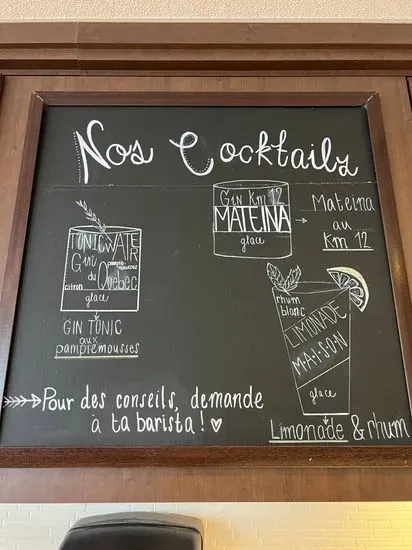 Nos Cocktails
TONIC WATER
Gin
du
pamplemousses
Québec
citron
glace
GIN TONIC
aux
pamplemousses
Gin Km 12
MATEINA
glace
Mateina
au
Km 12
rhum
blanc
LIMONADE
MAISON
glace
Limonade & rhum
Pour des conseils, demande
à ta barista! ♥